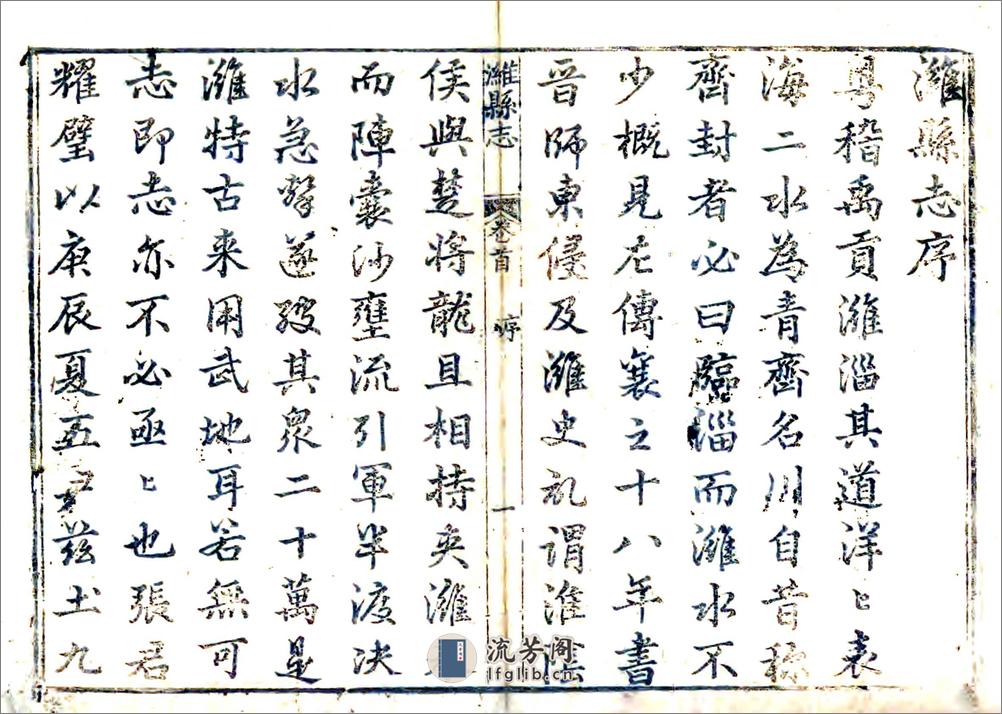 濰縣志序
粤稽禹貢濰淄其道洋〻表
海二水為青齊名川自昔称
齊封者必曰臨淄而濰水不
少概見左傳襄之十八年書
晋師東侵及濰史記謂淮陰
濰縣志 卷首 序 一
侯與楚將龍且相持夾濰
而陣囊沙壅流引軍半渡决
水急擊遂殺其衆二十萬是
濰特古来用武地耳若無可
志即志亦不必亟〻也張君
耀璧以庚辰夏五尹茲土九
流芳阁
lfglib.cn